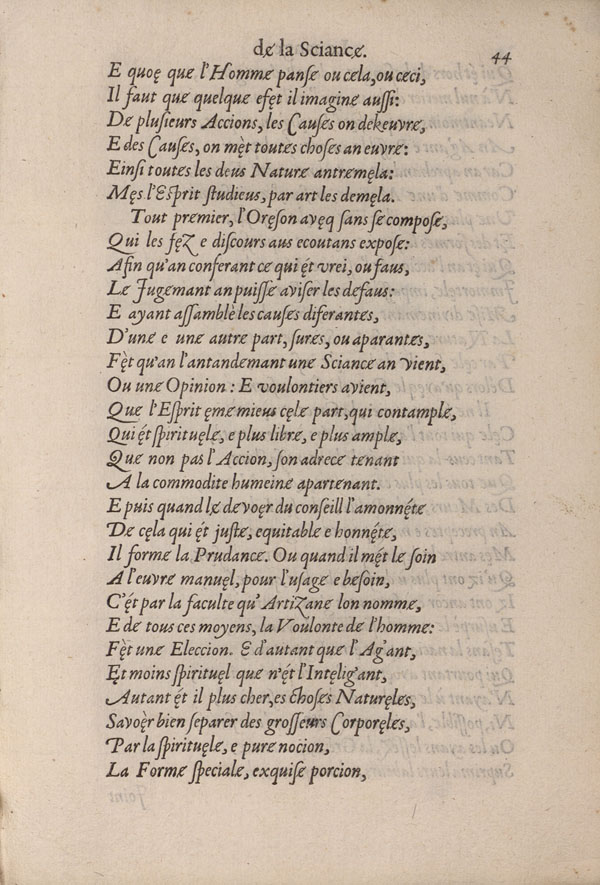 dę la Sciancę.
44
E quoę quę l'Hommę pansę ou cela, ou ceci,
Il faut quę quelquę efęt il imaginę aussi:
Dę plusieurs Accions, les Causęs on dekeuvrę,
E des Causęs, on męt toutęs chosęs an euvrę:
Einsi toutęs les deus Naturę antremęla:
Męs l'Esprit studieus, par art les demęla.
Tout premier, l'Oręson avęq sans sę composę,
Qui les fęz e discours aus ecoutans exposę:
Afin qu'an conferant cę qui ę́t vrei, ou faus,
Lę Jugęmant an puissę aviser les defaus:
E ayant assamblè les causęs diferantęs,
D'unę e unę autrę part, suręs, ou aparantęs,
Fę̀t qu'an l'antandęmant unę Sciancę an vient,
Ou unę Opinion: E voulontiers avient,
Quę l'Esprit ęmę mieus cęlę part, qui contamplę,
Qui ę́t spirituęlę, e plus librę, e plus amplę,
Quę non pas l'Accion, son adrecę tenant
A la commodite humeinę apartenant.
E puis quand lę dęvoęr du conseilh l'amonnę́tę
Dę cęla qui ę́t justę, equitablę e honnę́tę,
Il formę la Prudancę. Ou quand il mę́t lę soin
A l'euvrę manuęl, pour l'usagę e bęsoin,
C'ę́t par la faculte qu'Artizanę lon nommę,
E dę tous ces moyens, la Voulonte dę l'hommę:
Fę̀t unę Eleccion. E d'autant quę l'Ag'ant,
Ęt moins spirituęl quę n'ę́t l'Intęlig'ant,
Autant ę́t il plus cher, es chosęs Naturęlęs,
Savoę̀r bien separer des grosseurs Corporęlęs,
Par la spirituęlę, e purę nocion,
La Formę specialę, exquisę porcion,
Joint